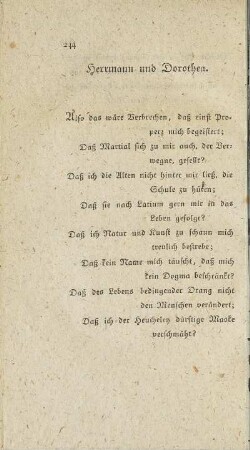 244
Herrmann und Dorothea.
Also das wäre Verbrechen, daß einst Pro-
perz mich begeistert;
Daß Martial sich zu mir auch, der Ver-
wegne, gesellt?
Daß ich die Alten nicht hinter mir ließ, die
Schule zu hüten;
Daß sie nach Latium gern mir in das
Leben gefolgt?
Daß ich Natur und Kunst zu schaun mich
treulich bestrebe;
Daß kein Name mich täuscht, daß mich
kein Dogma beschränkt?
Daß des Lebens bedingender Drang nicht
den Menschen verändert;
Daß ich der Heucheley dürftige Maske
verschmäht?